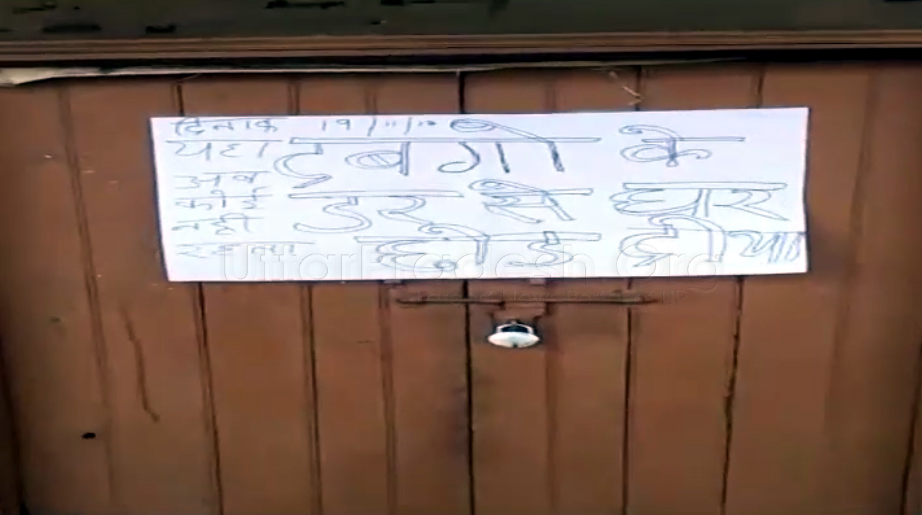 दिनाक 19/11/
यहा
अब
कोई
नही
रहता
दबगो के
डर से घर
छोड दीया
UttarPradesh.Org